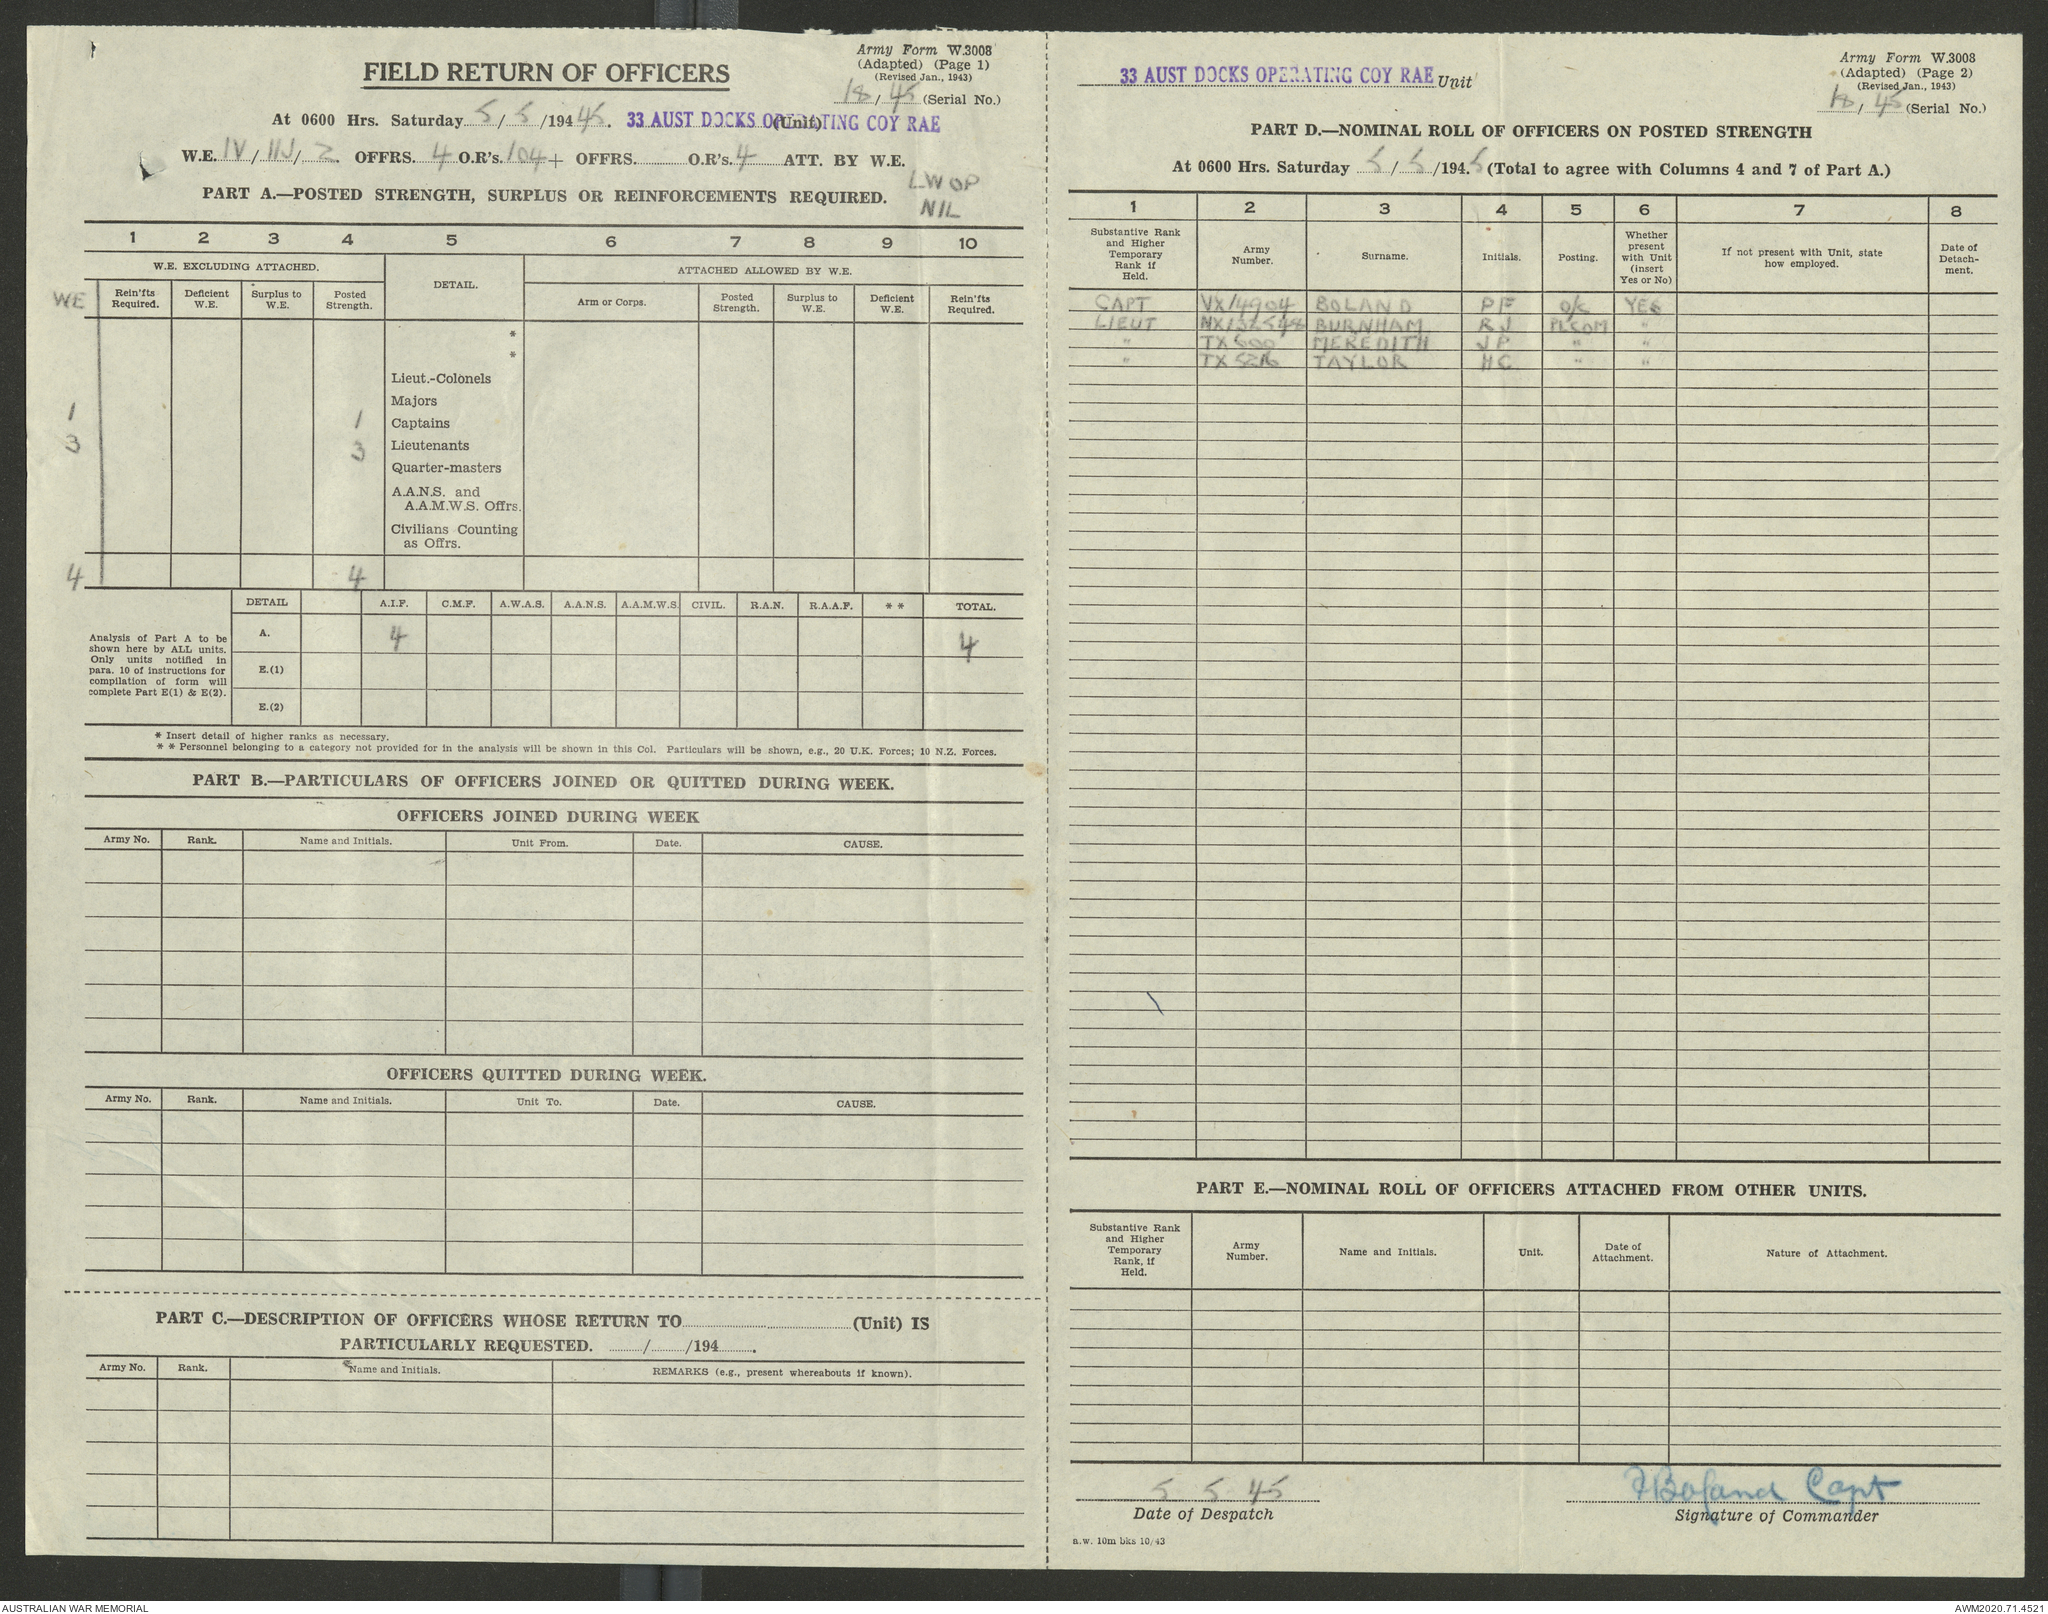 Army Form W.3008
(Adapted) (Page 1)
(Revised Jan., 1943)
18/45 (Serial No.)
FIELD RETURN OF OFFICERS
At 0600 Hrs. Saturday 5/5/194 45. 33 AUST DOCKS OPERATING COY RAE (Unit)
W.E. IV/IIJ/2. OFFRS. 4 O.R's. 104 + OFFRS. O.R's. 4 ATT. BY W.E.
LWOP
NIL
PART A.—POSTED STRENGTH, SURPLUS OR REINFORCEMENTS REQUIRED.
1 2 3 4 5 6 7 8 9 10
W.E. EXCLUDING ATTACHED. DETAIL. ATTACHED ALLOWED BY W.E.
WE Rein'fts Required. Deficient W.E. Surplus to W.E. Posted Strength. Arm or Corps. Posted Strength. Surplus to W.E. Deficient W.E. Rein'fts Required.
*
*
Lieut.-Colonels
Majors
1 1 Captains
3 3 Lieutenants
Quarter-masters
A.A.N.S. and
A.A.M.W.S. Offrs.
Civilians Counting
as Offrs.
4 4
DETAIL A.I.F. C.M.F. A.W.A.S. A.A.N.S. A.A.M.W.S. CIVIL. R.A.N. R.A.A.F. * * TOTAL.
Analysis of Part A to be
shown here by ALL units.
Only units notified in
para. 10 of instructions for
compilation of form will
complete Part E(1) & E(2).
A. 4 4
E.(1)
E.(2)
* Insert detail of higher ranks as necessary.
* * Personnel belonging to a category not provided for in the analysis will be shown in this Col. Particulars will be shown, e.g., 20 U.K. Forces; 10 N.Z. Forces.
PART B.—PARTICULARS OF OFFICERS JOINED OR QUITTED DURING WEEK.
OFFICERS JOINED DURING WEEK
Army No. Rank. Name and Initials. Unit From. Date. CAUSE.
OFFICERS QUITTED DURING WEEK.
Army No. Rank. Name and Initials. Unit To. Date. CAUSE.
PART C.—DESCRIPTION OF OFFICERS WHOSE RETURN TO (Unit) IS
PARTICULARLY REQUESTED. / /194 .
Army No. Rank. Name and Initials. REMARKS (e.g., present whereabouts if known).
Army Form W.3008
(Adapted) (Page 2)
(Revised Jan., 1943)
18/45 (Serial No.)
33 AUST DOCKS OPERATING COY RAE Unit
PART D.—NOMINAL ROLL OF OFFICERS ON POSTED STRENGTH
At 0600 Hrs. Saturday 5/5/194.5 (Total to agree with Columns 4 and 7 of Part A.)
1 2 3 4 5 6 7 8
Substantive Rank and Higher Temporary Rank if Held. Army Number. Surname. Initials. Posting. Whether present with Unit (insert Yes or No) If not present with Unit, state how employed. Date of Detach-ment.
CAPT VX14904 BOLAND PF O/C YES
LIEUT NX132548 BURNHAM RJ PLCOM "
" TX600 MEREDITH JP " "
" TX5216 TAYLOR HC " "
PART E.—NOMINAL ROLL OF OFFICERS ATTACHED FROM OTHER UNITS.
Substantive Rank and Higher Temporary Rank, if Held. Army Number. Name and Initials. Unit. Date of Attachment. Nature of Attachment.
5 5 45
Date of Despatch
Boland Capt
Signature of Commander
a.w. 10m bks 10/43
AUSTRALIAN WAR MEMORIAL
AWM2020.71.4521